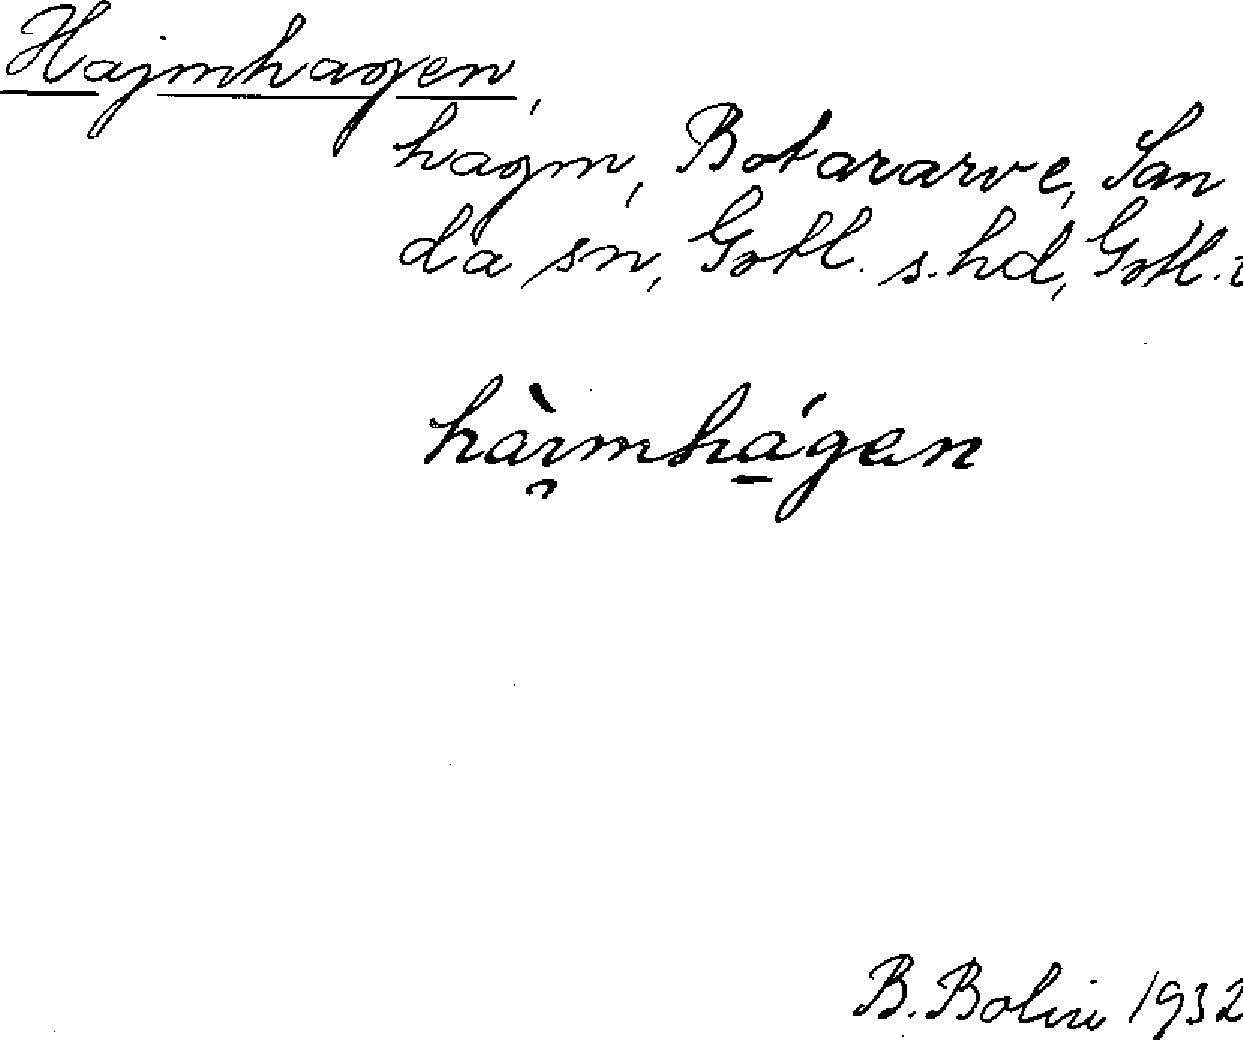 Hajmhagen,
hagm, Botararve, San
da sn, Gotl. s. hd, Gotl.
hàı̯mhá̱gen
B. Bolin 1932